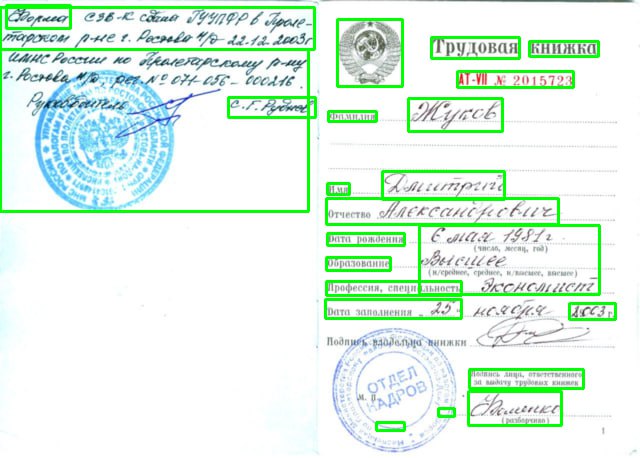 Форма СЗВ-К сдана ГУУПФР в Проле-
тарском р-не г. Ростова н/Д 22.12.2003г
ИМНС России по Пролетарскому р-ну
г. Ростова н/Д, рег. № 071-056-000216.
Руководитель С. Г. Руднев
Трудовая книжка
АТ-VII № 2015723
Фамилия Жуков
Имя Дмитрий
Отчество Александрович
Дата рождения 6 мая 1981г.
(число, месяц, год)
Образование Высшее
(н/среднее, среднее, н/высшее, высшее)
Профессия, специальность Экономист
Дата заполнения „ 25 “ ноября 2003г.
Подпись владельца книжки
ОТДЕЛ
КАДРОВ
М. П.
Подпись лица, ответственного
за выдачу трудовых книжек
(разборчиво)
1